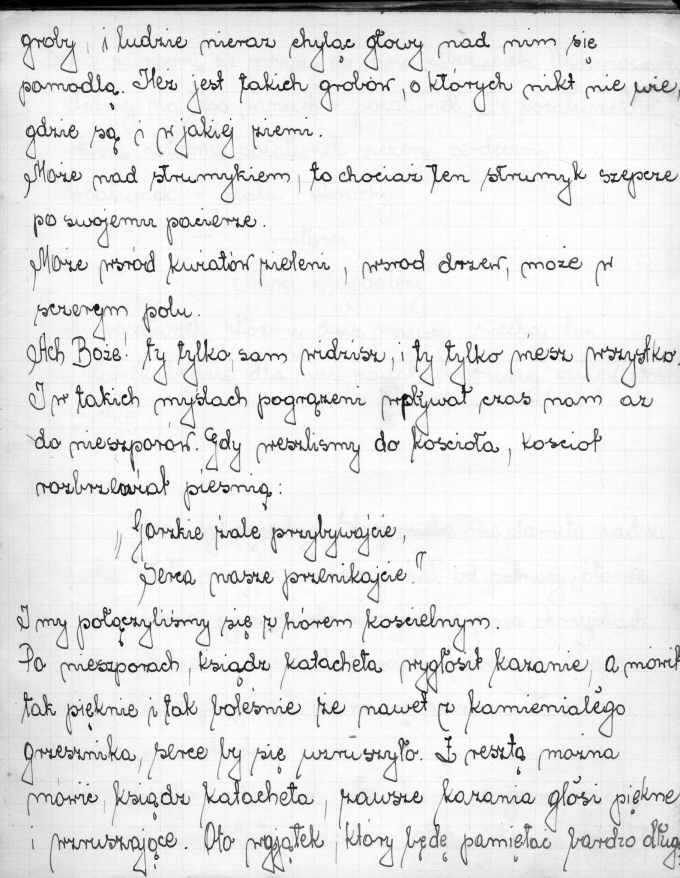 groby, i ludzie nieraz chyląc głowy nad nim się
pomodlą. Ileż jest takich grobów, o których nikt nie wie,
gdzie są i w jakiej ziemi.
Może nad strumykiem, to chociaż ten strumyk szepcze
po swojemu pacierze.
Może wśród kwiatów zieleni, wsrod drzew, może w
sczerem polu.
Ach Boże! ty tylko sam widzisz, i ty tylko wiesz wszystko.
I w takich myślach pogrążeni wpływał czas nam aż
do nieszporów. Gdy weszlismy do kościoła, kosciół
rozbrzewiał piesnią:
"Gorzkie żale przybywajcie,
Serca nasze przenikajcie."
I my połączyliśmy się z hórem koscielnym.
Po nieszporach, ksiądz katacheta wygłosił kazanie, a mówił
tak pięknie i tak boleśnie że nawet z kamieniałego
grzesznika, serce by się wzruszyło. Z resztą można
mówic, ksiądz katacheta, zawsze kazania głosi piękne
i wzruszające. Oto wyjątek, który będę pamiętać bardzo dług